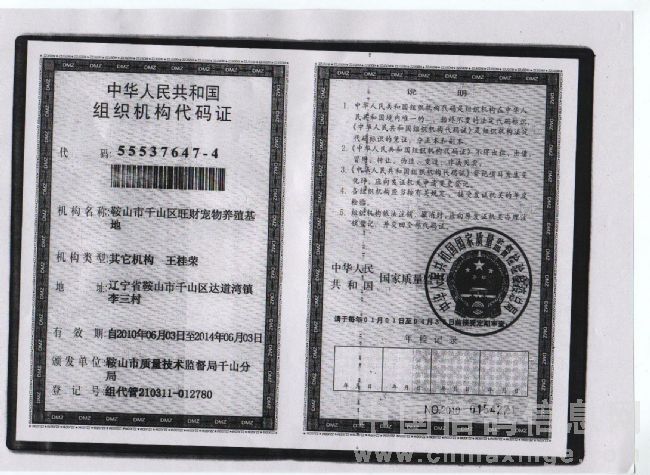 中华人民共和国
组织机构代码证
代 码: 55537647-4
机构名称: 鞍山市千山区旺财宠物养殖基
地
机构类型: 其它机构 王桂荣
地 址: 辽宁省鞍山市千山区达道湾镇
李三村
有 效 期 自2010年06月03日至2014年06月03日
颁发单位: 鞍山市质量技术监督局千山分
局
登 记 号 组代管210311-012780
说 明
1. 中华人民共和国组织机构代码是组织机构在中华人
民共和国境内唯一的、始终不变的法定代码标识,
《中华人民共和国组织机构代码证》是组织机构法定
代码标识的凭证,分正本和副本。
2. 《中华人民共和国组织机构代码证》不得出租、出借、
冒用、转让、伪造、变造、非法买卖。
3. 《中华人民共和国组织机构代码证》登记项目发生变
化时,应向发证机关申请变更登记。
4. 各组织机构应当按有关规定,接受发证机关的年度
检验。
5. 组织机构依法注销、撤消时,应向原发证机关办理注
销登记,并交回全部代码证。
中华人民
共 和 国
国家质量
中华人民共和国国家质量监督检验检疫总局
年 检 记 录
年 月 日
年 月 日
年 月 日
年 月 日
NO.2010
www.chinaxinge.com